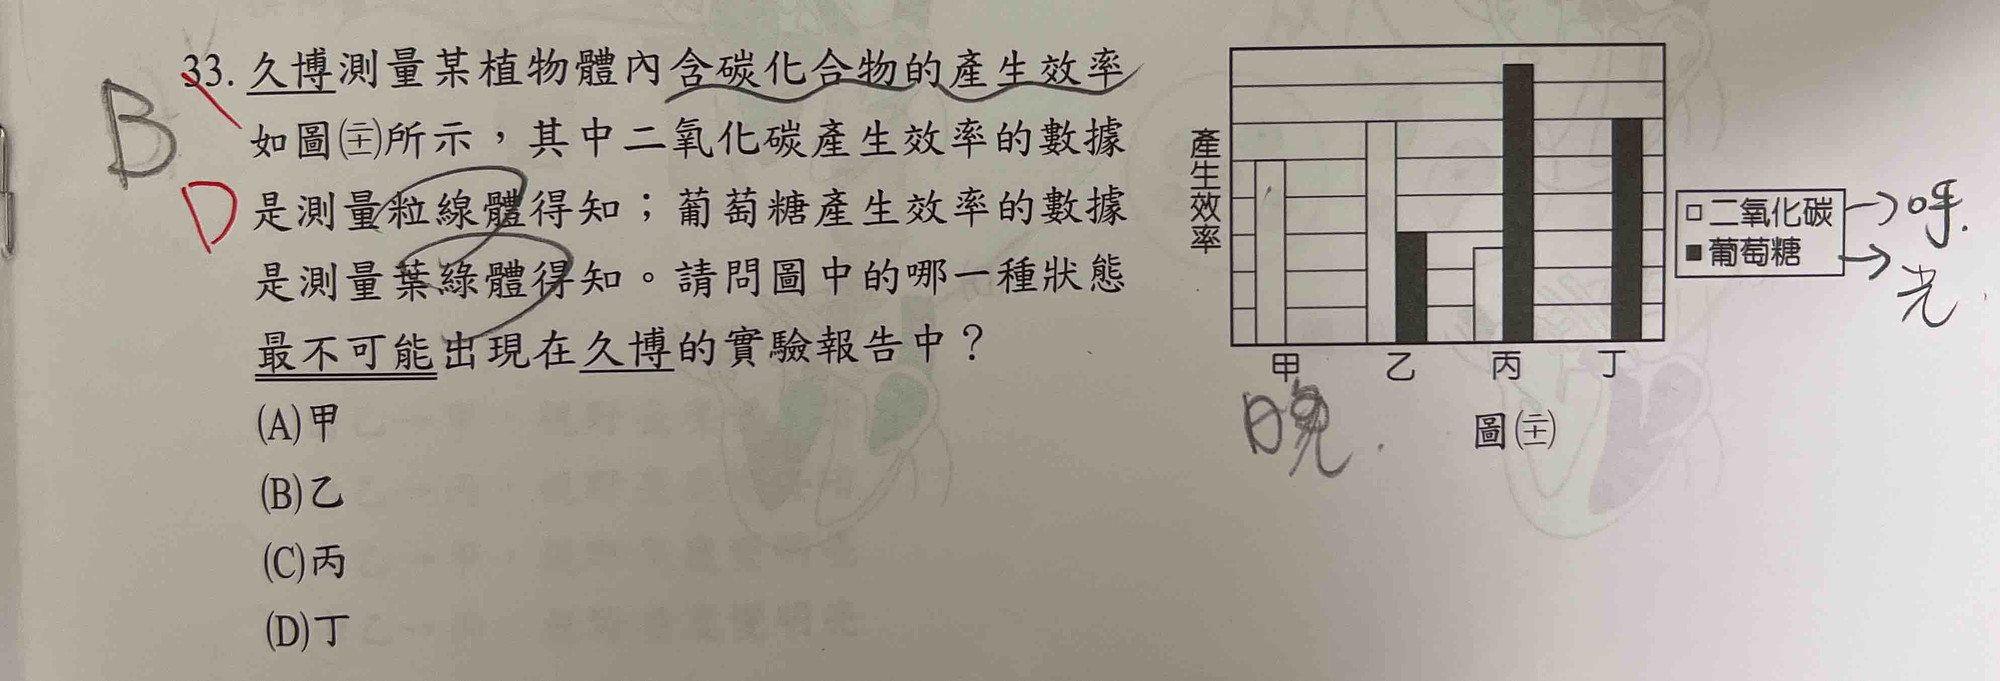 B
D
33. 久博測量某植物體內含碳化合物的產生效率
如圖㈩所示，其中二氧化碳產生效率的數據
是測量粒線體得知；葡萄糖產生效率的數據
是測量葉綠體得知。請問圖中的哪一種狀態
最不可能出現在久博的實驗報告中？
(A)甲
(B)乙
(C)丙
(D)丁
產生效率
甲 乙 丙 丁
晚.
圖
□二氧化碳→呼.
■葡萄糖→光